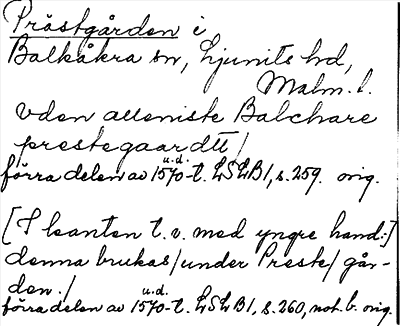 Prästgården i
Balkåkra sn, Ljunits hd,
Malm. l.
vden alleniste Balchare
prestegaardtt/
förra delen av 1570-t. LSLB1, s. 259. orig.
u.d.
[I kanten t.v. med yngre hand:]
denna brukas/under Preste/går-
den./
förra delen av 1570-t. LSLB1, s. 260, not b. orig.
u.d.